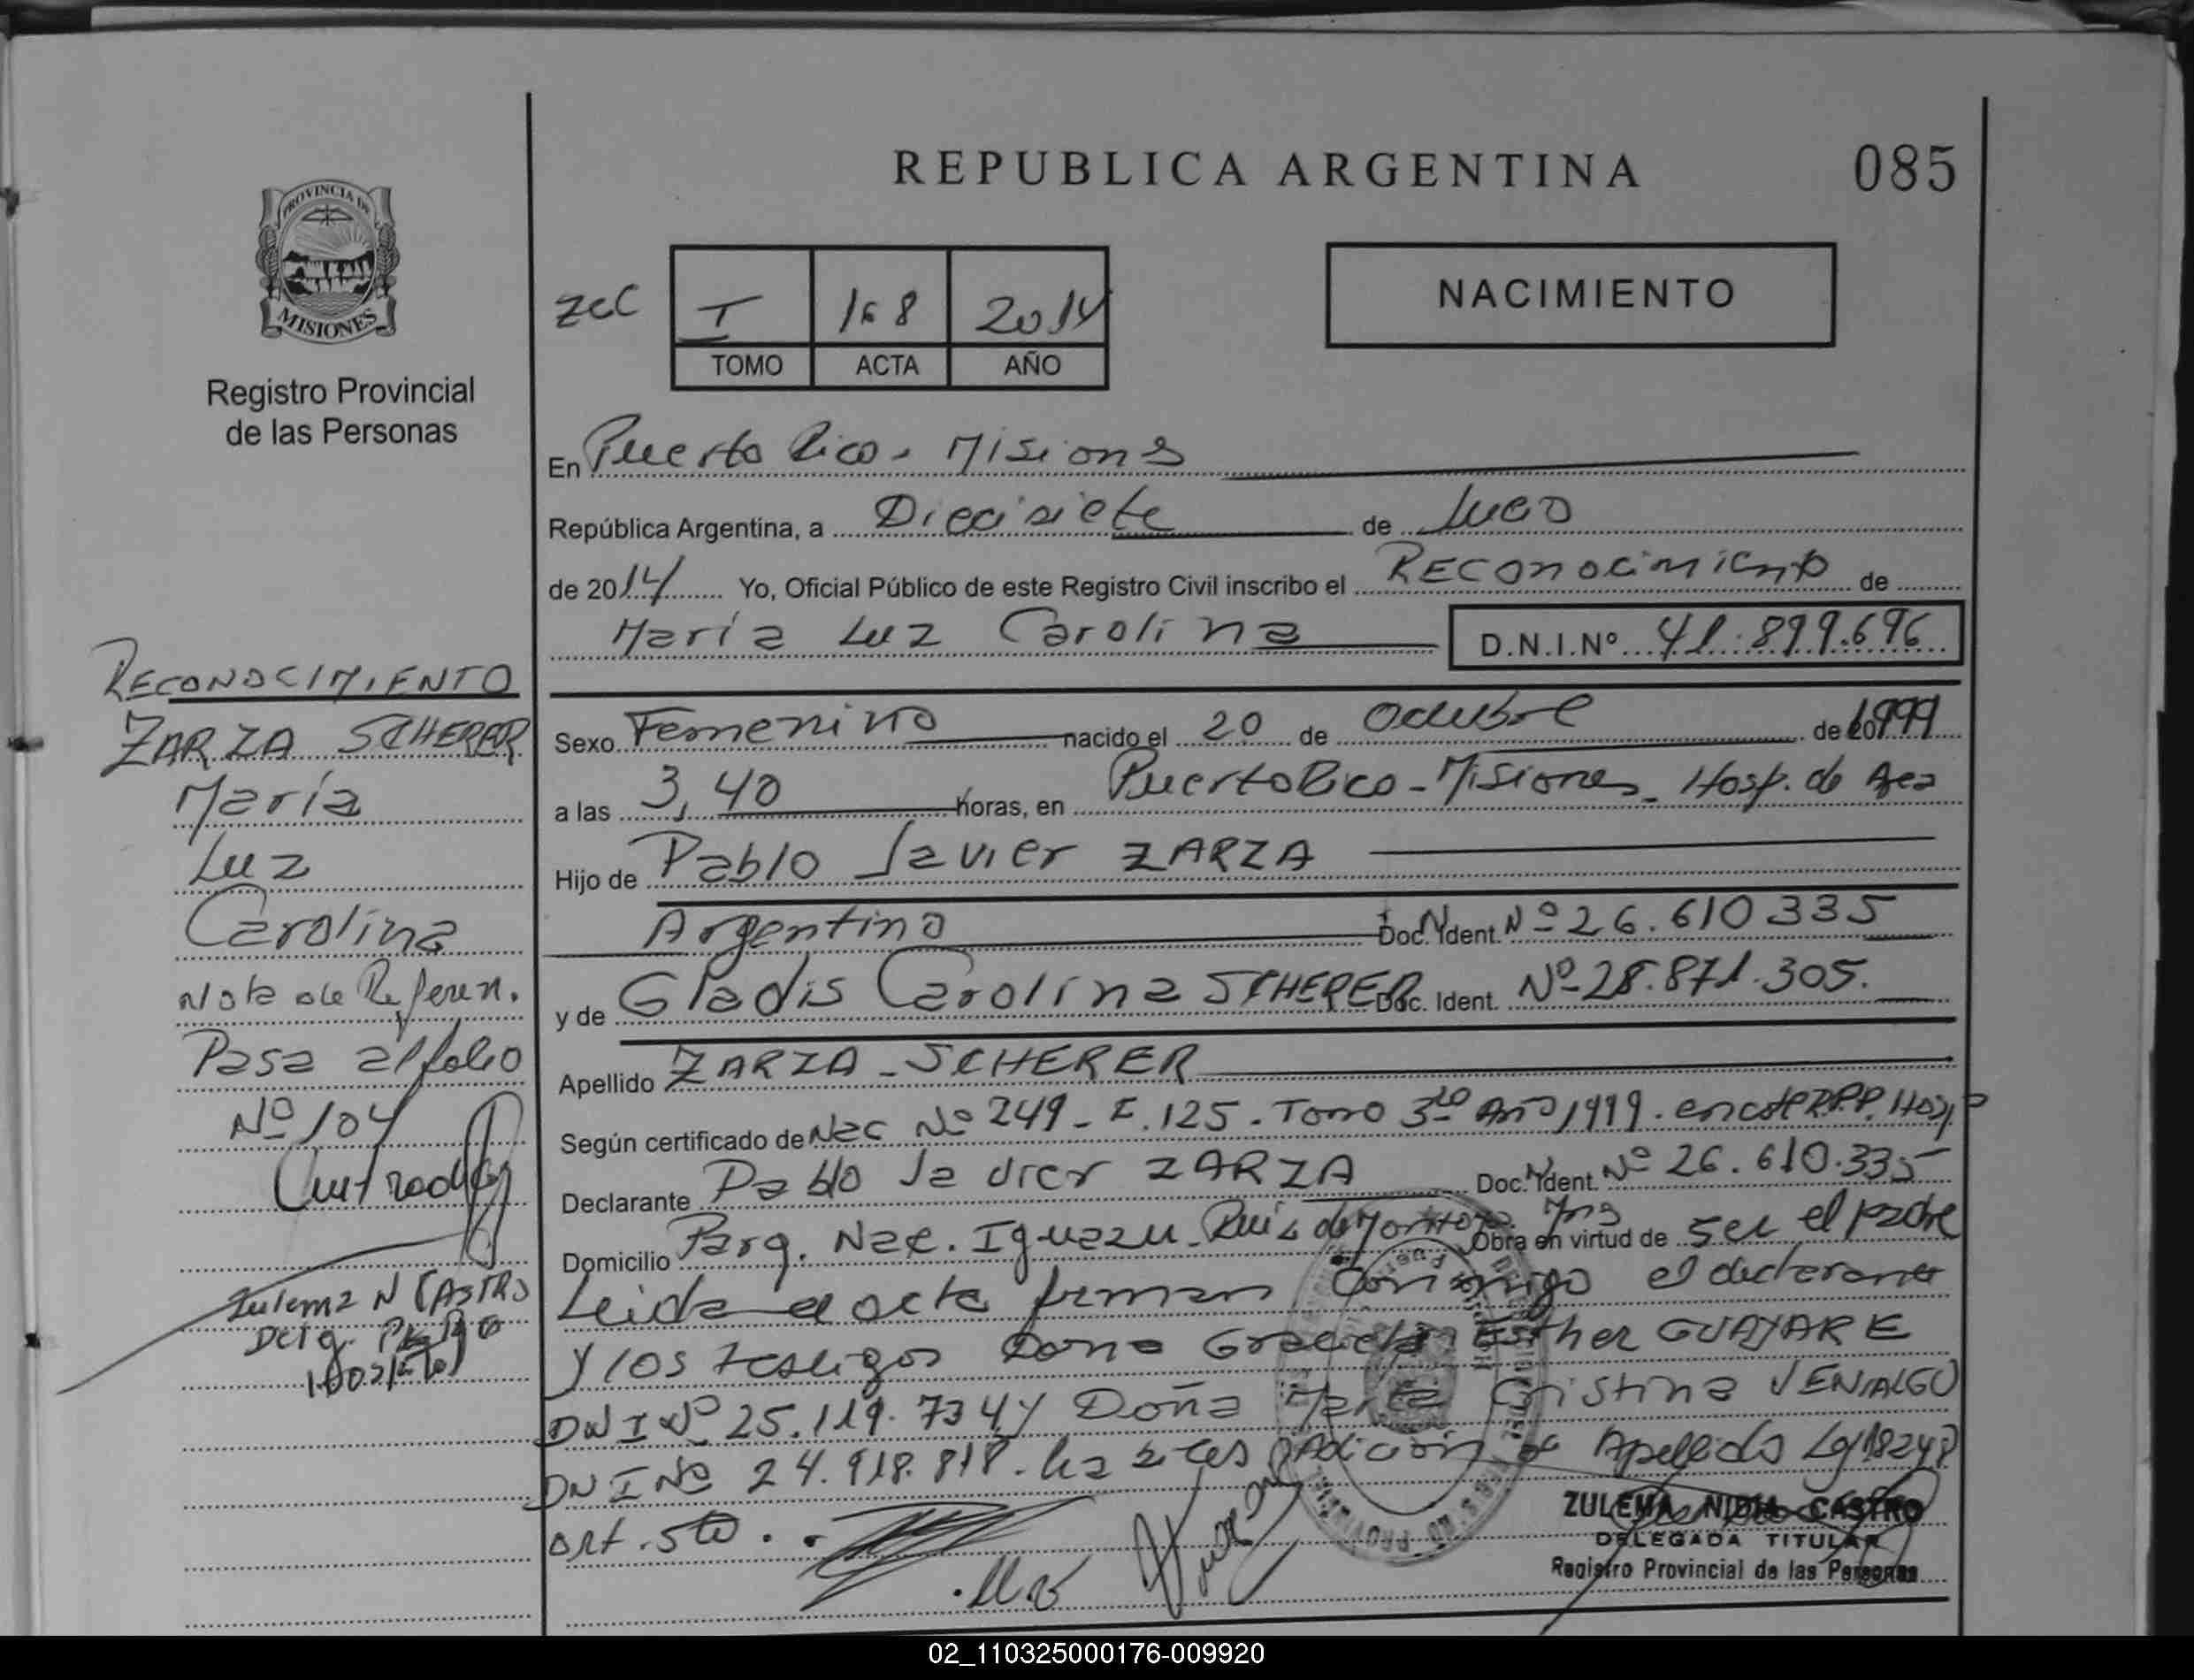 REPUBLICA ARGENTINA
085
PROVINCIA DE
MISIONES
Registro Provincial
de las Personas
NACIMIENTO
I 168 2014
TOMO ACTA AÑO
En Puerto Rico - Misiones
República Argentina, a Diecisiete de
de 2014 Yo, Oficial Público de este Registro Civil inscribo el Reconocimiento de
María Luz Carolina D.N.I.Nº 41.899.696
Sexo Femenino nacido el 20 de Octubre de 1999
a las 3,40 horas, en Puerto Rico - Misiones - Hosp. de Area
Hijo de Pablo Javier ZARZA
Argentino Doc. Ident. Nº 26.610335
y de Gladis Carolina SCHERER Doc. Ident. Nº 28.871.305.
Apellido ZARZA - SCHERER
Según certificado de Nac Nº 249 - F. 125 - Tomo 3º Año 1999.
Declarante Pablo Javier ZARZA Doc. Ident. Nº 26.610.335
Domicilio Parq. Nac. Iguazu - Ruiz de Montoya. Mns Obra en virtud de ser el padre
Leida el acta firman conmigo el declarante
y los testigos Doña Graciela Esther GUAYARE
DNI Nº 25.119.734 y Doña Cristina VENIALGO
DNI Nº 24.918.818. Adicion de Apellido Ley 18248
art. 5to.
ZULEMA NIDIA CASTRO
DELEGADA TITULAR
Registro Provincial de las Personas
RECONOCIMIENTO
ZARZA SCHERER
María
Luz
Carolina
Nota de Referen.
Pasa al folio
Nº 104
Zulema N CASTRO
02_110325000176-009920